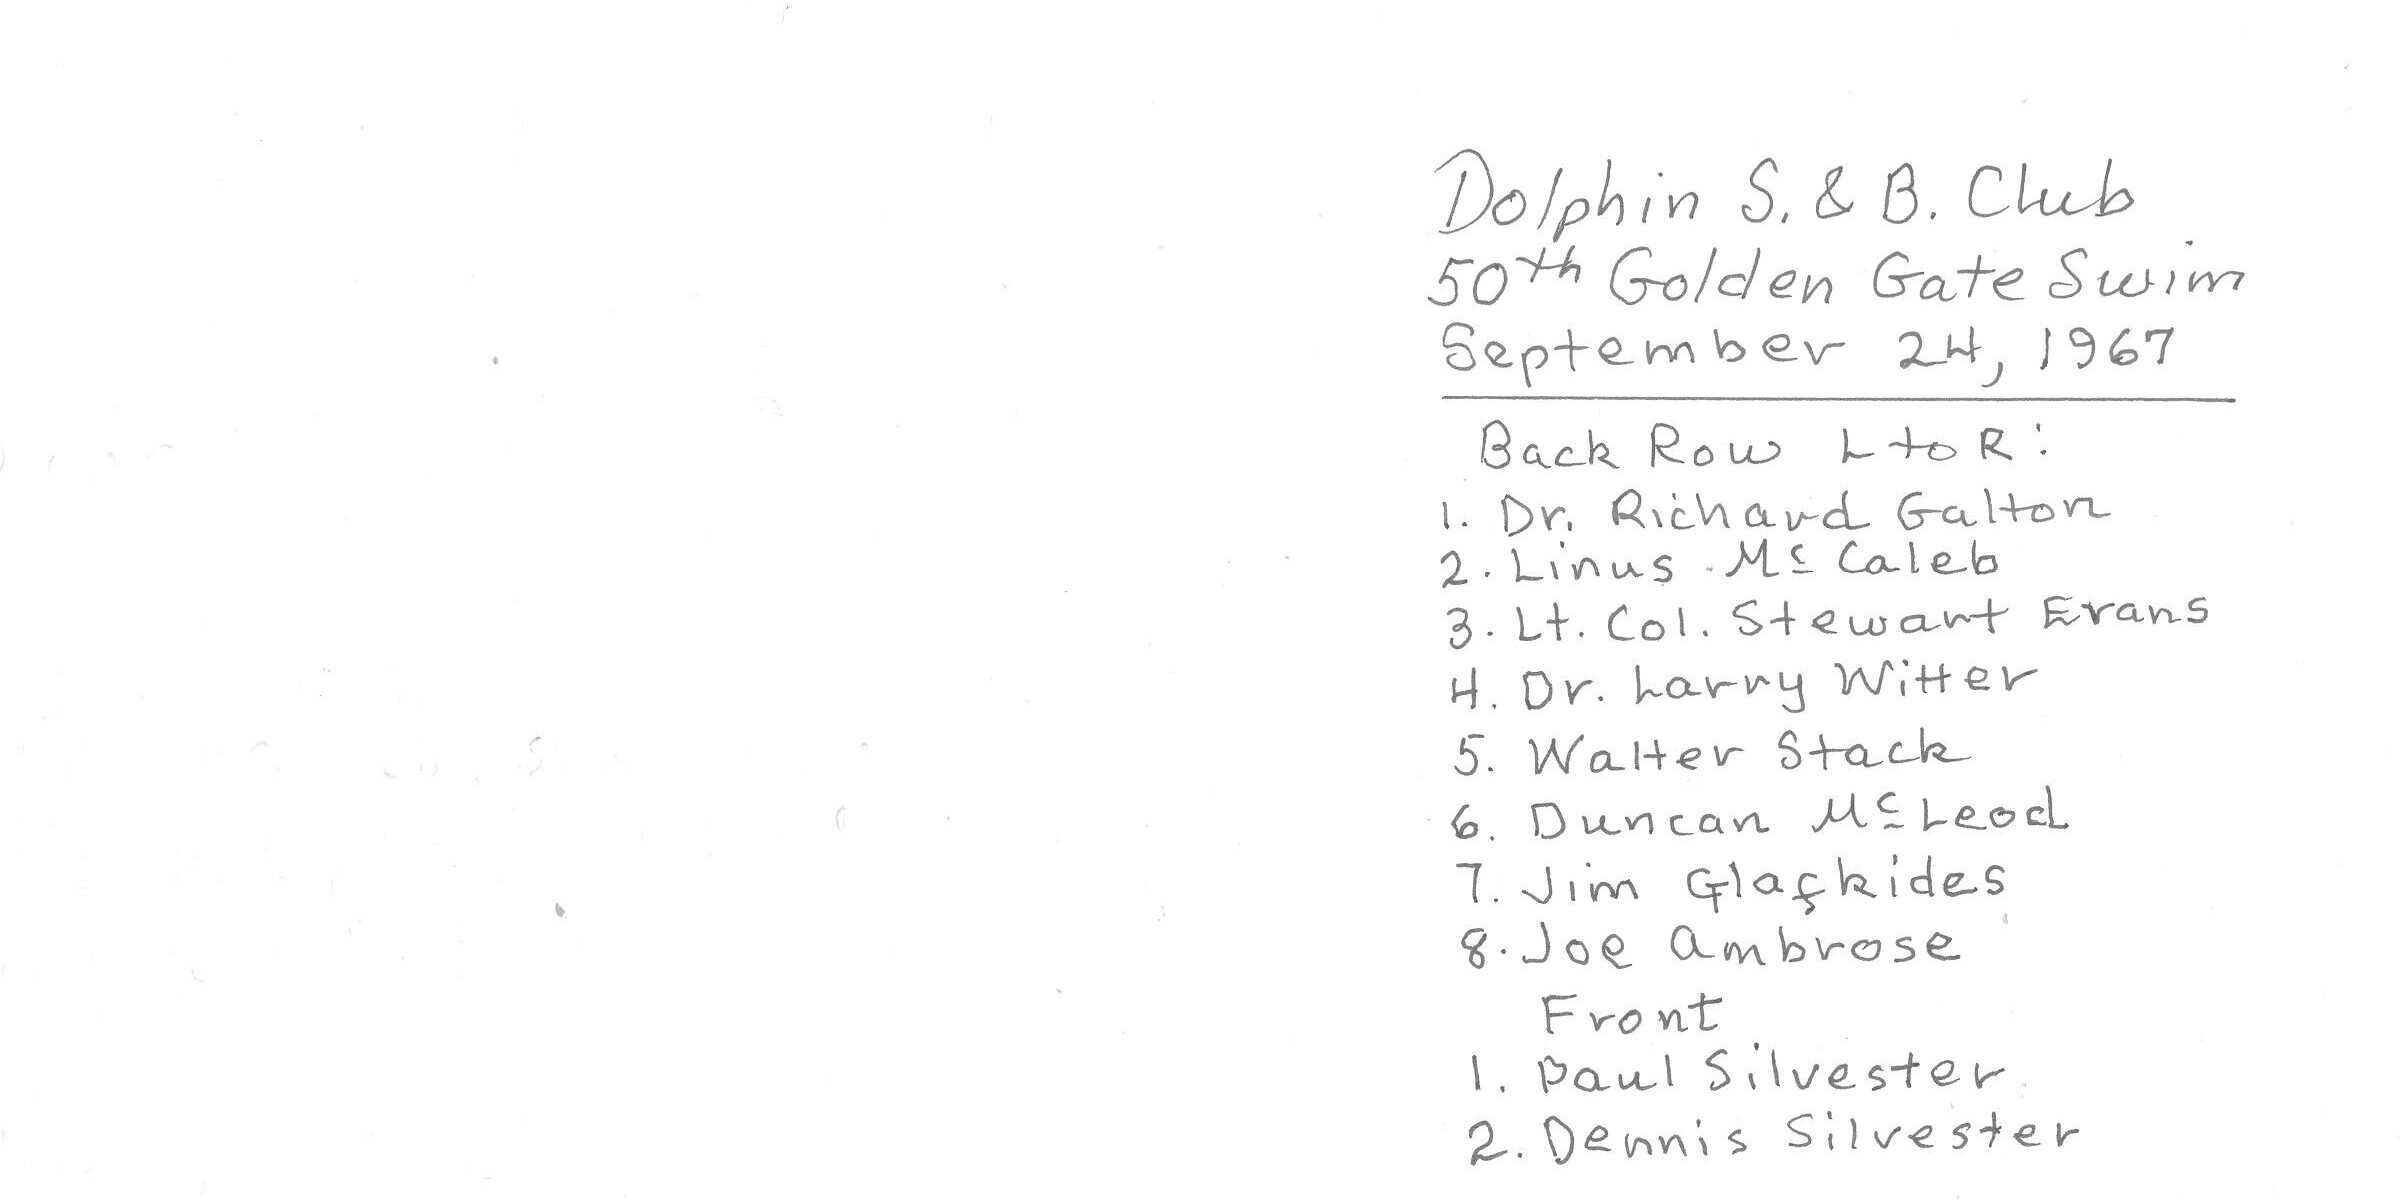 Dolphin S. & B. Club
50th Golden Gate Swim
September 24, 1967
Back Row L to R:
1. Dr. Richard Galton
2. Linus Mc Caleb
3. Lt. Col. Stewart Evans
4. Dr. Larry Witter
5. Walter Stack
6. Duncan McLeod
7. Jim
8. Joe Ambrose
Front
1. Paul Silvester
2. Dennis Silvester